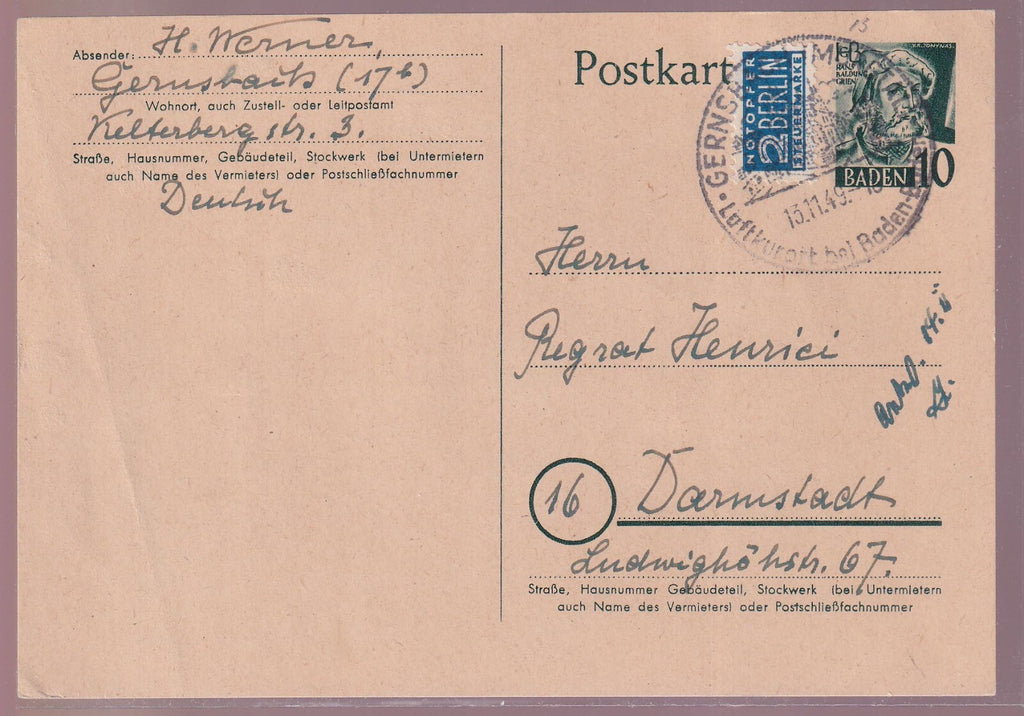 Absender: H. Werner,
Gernsbach (17b)
Wohnort, auch Zustell- oder Leitpostamt
Kelterbergstr. 3.
Straße, Hausnummer, Gebäudeteil, Stockwerk (bei Untermietern
auch Name des Vermieters) oder Postschließfachnummer
Deutsch
Postkart
NOTOPFER
2 BERLIN
STEUERMARKE
V.K. JONYNAS.
HANS
BALDUNG
GRIEN
BADEN 10
GERNSB
13.11.49.-18
Luftkurort bei Baden-B
13
Herrn
Regrat Henrici
14.11
16 Darmstadt
Ludwighöhstr. 67.
Straße, Hausnummer Gebäudeteil, Stockwerk (bei Untermietern
auch Name des Vermieters) oder Postschließfachnummer